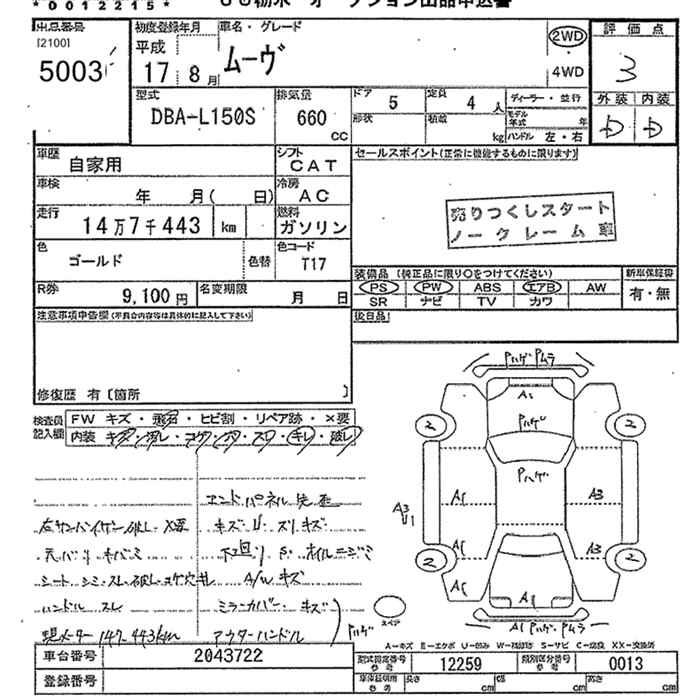 *0012215*
オークション出品申込書
出品番号 初度登録年月 車名・グレード
[2100] 平成 2WD 評価点
5003 17 8月 ムーヴ 4WD 3
型式 排気量 ドア 5 定員 4人 ディーラー・並行 外装 内装
DBA-L150S 660 CC 形状 積載 kg モデル年式 年 D D
ハンドル 左・右
車歴 自家用 シフト CAT セールスポイント(正常に機能するものに限ります)
車検 年 月( 日) 冷房 AC
走行 14万7千443 km 燃料 ガソリン 売りつくしスタート
ノークレーム車
色 ゴールド 色替 色コード T17
装備品(純正品に限り○をつけてください) 新車保証書
R券 9,100円 名変期限 月 日 PS PW ABS エアB AW 有・無
SR ナビ TV カワ
注意事項申告欄(不具合内容等は具体的に記入して下さい) 後日品
修復歴 有〔箇所 〕
検査員記入欄 FW キズ・飛石・ヒビ割・リペア跡・×要
内装 キズ・汚レ・コゲ・穴・スレ・キレ・破レ
PハゲPムラ
A1
Pハゲ
Pハゲ
2 2
A1 A3
A3
U1
A1 A3
2 2
A1
A1 Pハゲ・Pムラ
エンドパネル
左サンバイザー破レ X要 キズU スリキズ
天バリ キバミ 下回りS ホイルニジミ
シート シミ・スレ・破レ・コゲ穴 A/W キズ
ハンドル スレ ミラーカバー キズ
現メーター 147,443km アウターハンドル Pハゲ
スペア
A-キズ E-エクボ U-凹み W-補修跡 S-サビ C-腐食 XX-交換済
車台番号 2043722 型式指定番号 参考 12259 類別区分番号 参考 0013
登録番号 車庫証明用 参考 長さ cm 幅 cm 高さ cm